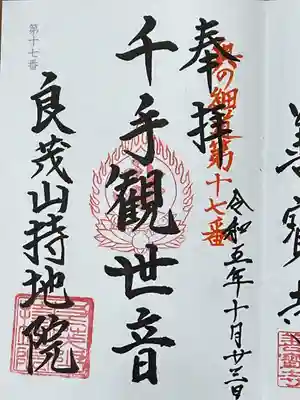 善寳寺
令和五年十月廿三日
奥の細道第十七番
奉拝
千手観世音
良茂山持地院
第十七番